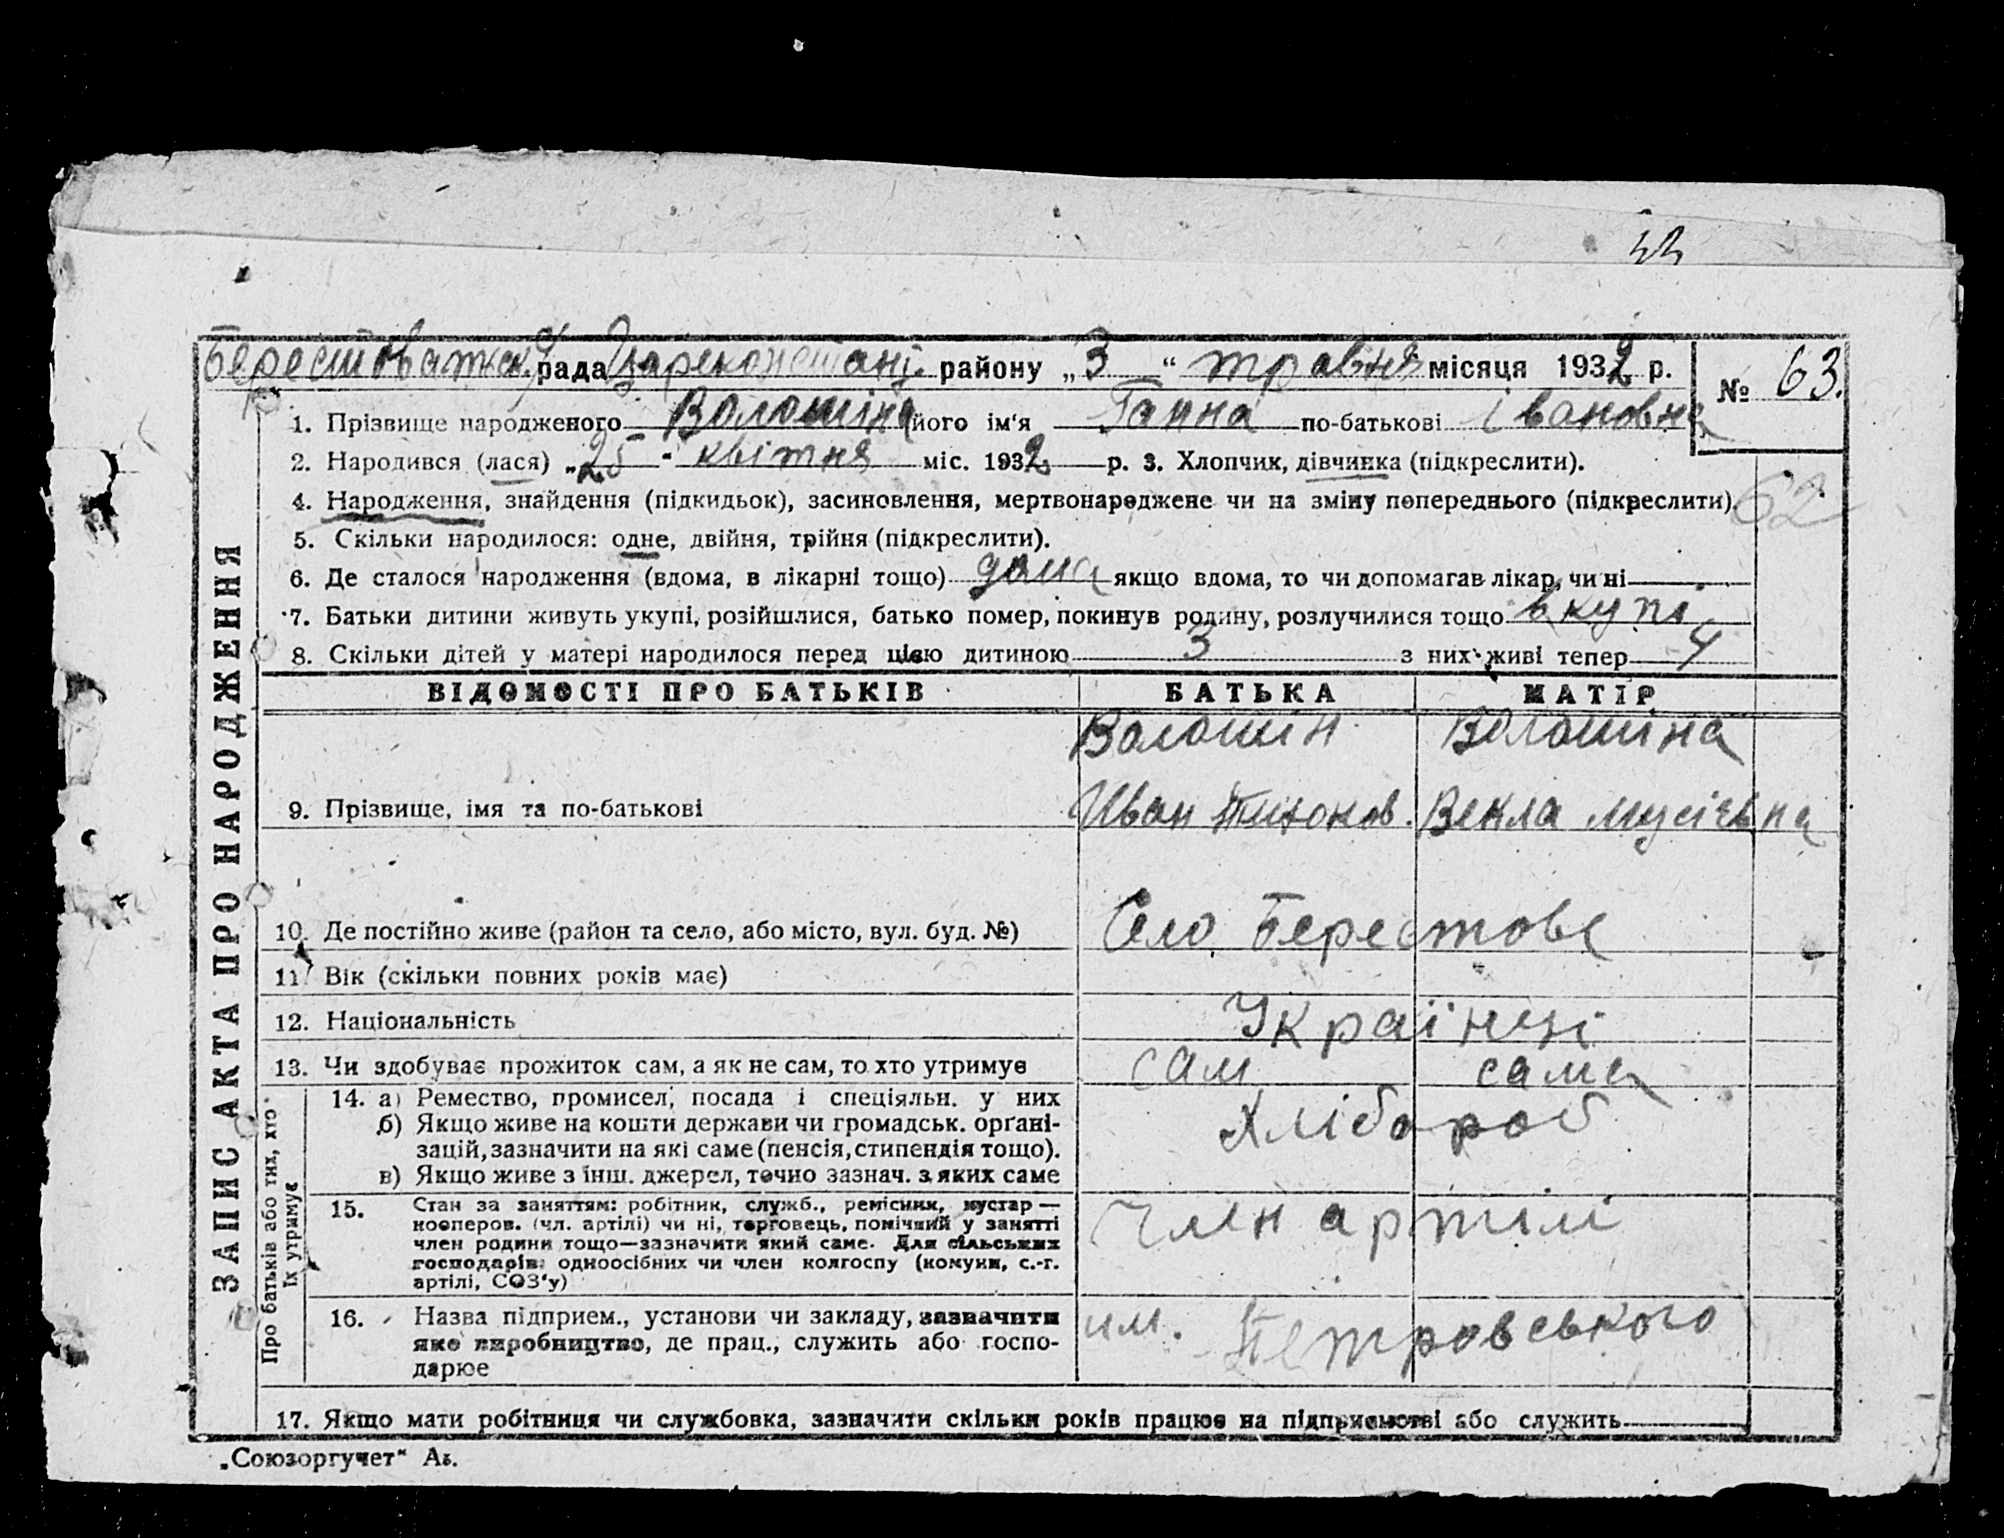 33
Берестоватська рада Цареконстант. району „3“ травня місяця 1932 р. № 63.
1. Прізвище народженого Волошіна його ім'я Ганна по-батькові Івановна
2. Народився (лася) „25" квітня міс. 1932 р. 3. Хлопчик, дівчинка (підкреслити).
4. Народження, знайдення (підкидьок), засиновлення, мертвонароджене чи на зміну попереднього (підкреслити).
62
5. Скільки народилося: одне, двійня, трійня (підкреслити).
6. Де сталося народження (вдома, в лікарні тощо) дома якщо вдома, то чи допомагав лікар, чи ні
7. Батьки дитини живуть укупі, розійшлися, батько помер, покинув родину, розлучилися тощо вкупі
8. Скільки дітей у матері народилося перед цією дитиною 3 з них живі тепер 4
ЗАПИС АКТА ПРО НАРОДЖЕННЯ
ВІДОМОСТІ ПРО БАТЬКІВ БАТЬКА МАТІР
Волошин Волошина
9. Прізвище, імя та по-батькові Иван Тихонов. Векла Мусієвна
10. Де постійно живе (район та село, або місто, вул. буд. №) Село Берестове
11. Вік (скільки повних років має)
12. Національність Українці
13. Чи здобуває прожиток сам, а як не сам, то хто утримує сам сама
Про батьків або тих, хто їх утримує
14. а) Ремество, промисел, посада і спеціяльн. у них Хлібороб
б) Якщо живе на кошти держави чи громадськ. орґані-
зацій, зазначити на які саме (пенсія, стипендія тощо).
в) Якщо живе з інш. джерел, точно зазнач. з яких саме
15. Стан за заняттям: робітник, служб., ремісник, кустар — Член артілі
кооперов. (чл. артілі) чи ні, торговець, помічний у занятті
член родини тощо—зазначити який саме. Для сільських
господарів: одноосібних чи член колгоспу (комуни, с.-г.
артілі, СОЗ'у)
16. Назва підприєм., установи чи закладу, зазначити им. Петровського
яке виробництво, де прац., служить або госпо-
дарює
17. Якщо мати робітниця чи службовка, зазначити скільки років працює на підприємстві або служить
„Союзоргучет“